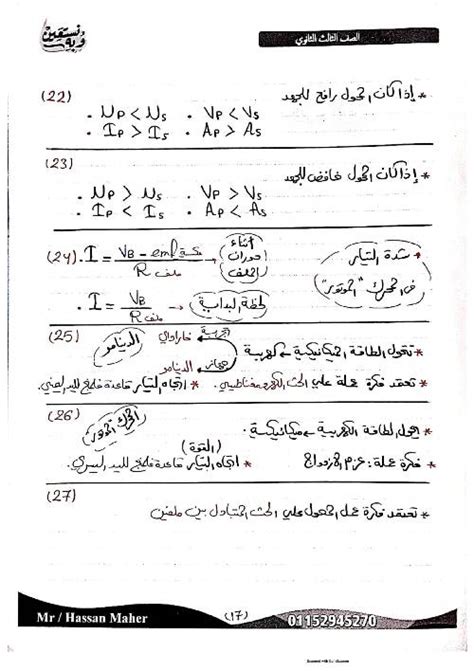 وبه نستعين
الصف الثالث الثانوي
(22) * إذا كان المحول رافع للجهد
. Np < Ns . Vp < Vs
. Ip > Is . Ap > As
(23) * إذا كان المحول خافض للجهد
. Np > Ns . Vp > Vs
. Ip < Is . Ap < As
(24) * شدة التيار في المحرك "الموتور"
أثناء دوران الملف
. I = VB - emf عكسية / R ملف
لحظة البداية
. I = VB / R ملف
(25) الدينامو
تجربة فاراداي
* تحول الطاقة الميكانيكية ← كهربية
الدينامو
* تعتمد فكرة عمله علي الحث الكهرومغناطيسي . * اتجاه التيار قاعدة فلمنج لليد اليمني.
(26) المحرك الموتور
* يحول الطاقة الكهربية ← ميكانيكية.
(القوة)
* فكرة عمله: عزم الازدواج * اتجاه التيار قاعدة فلمنج لليد اليسري.
(27)
* تعتمد فكرة عمل المحول علي الحث المتبادل بين ملفين
Mr / Hassan Maher (17) 01152945270